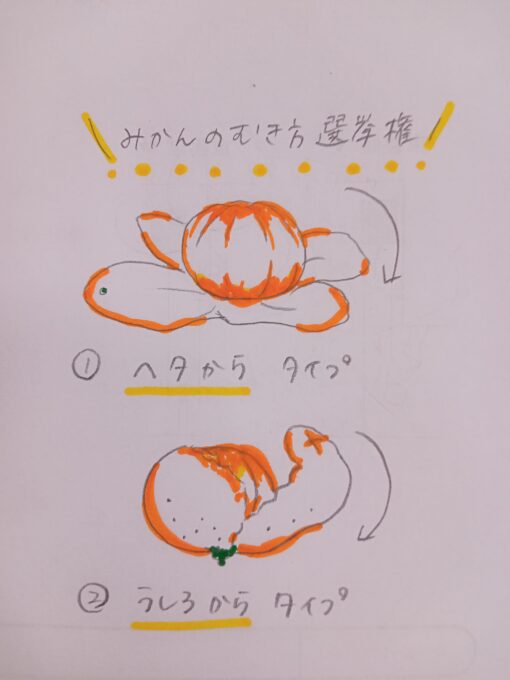 みかんのむき方選挙権
① ヘタから タイプ
② うしろから タイプ